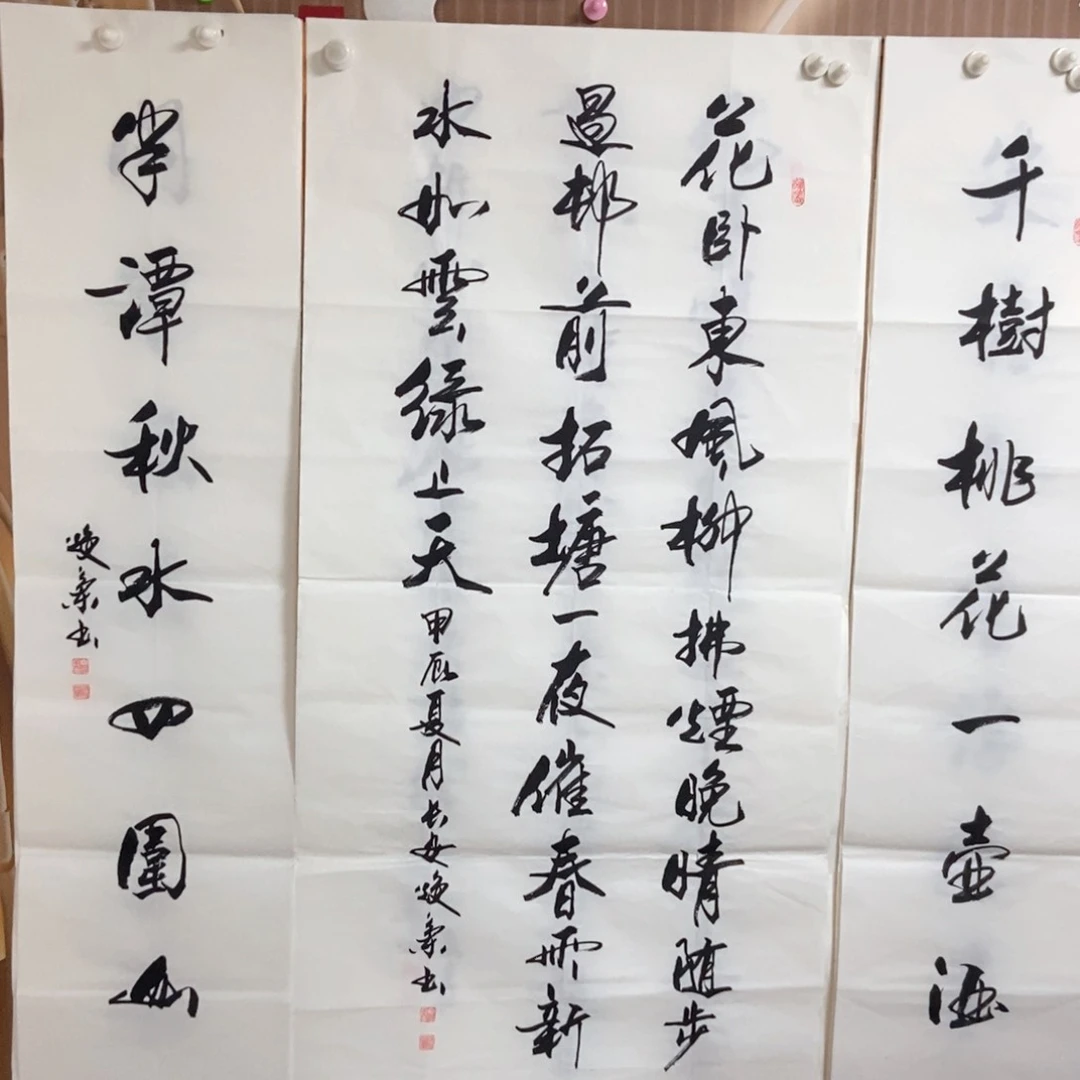 千樹桃花一壺酒
花卧東風柳拂煙晚晴随步
過邨前拓塘一夜催春雨新
水如雲緑上天甲辰夏月长安焕书
半潭秋水四圍山
焕书